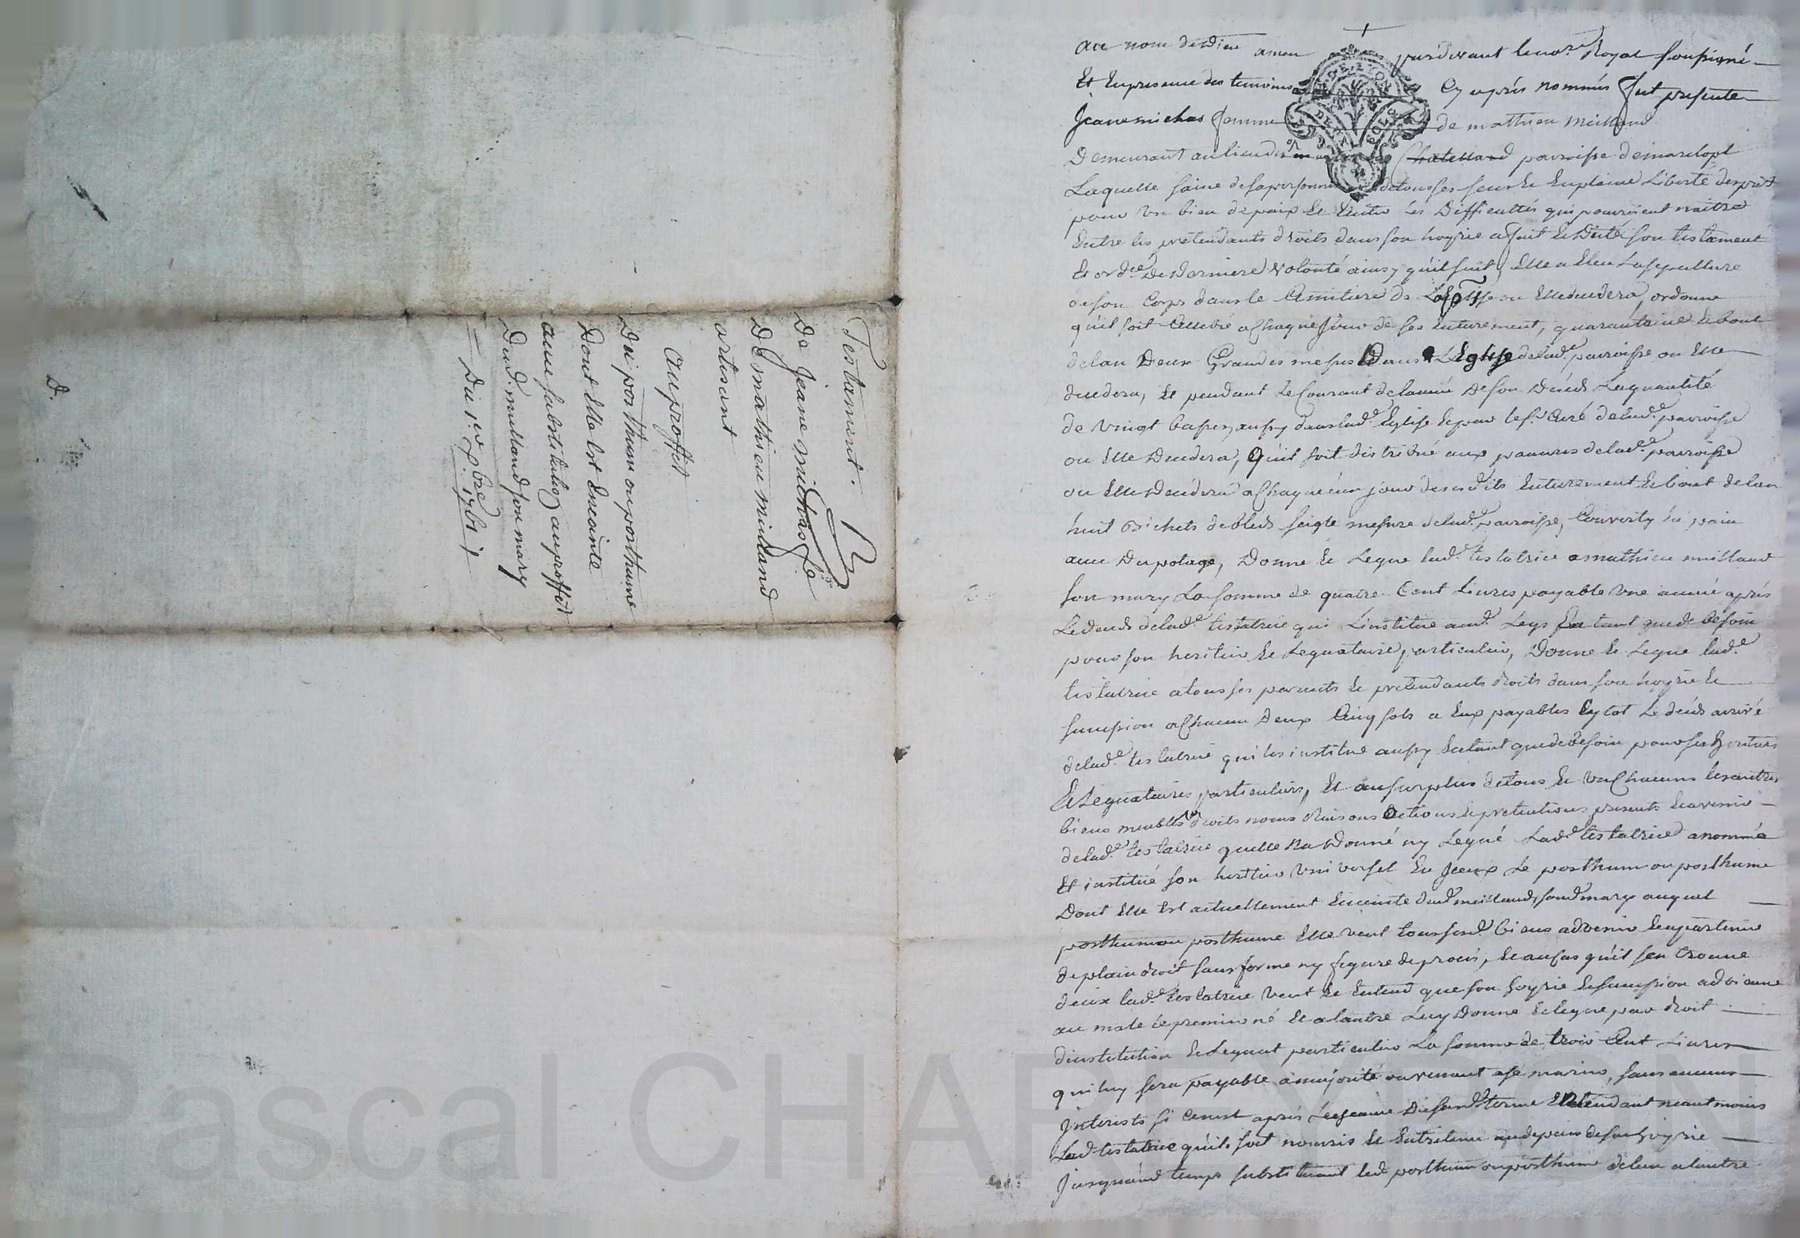 Testament.
De Jeane michas fe
De mathieu miolland
artisant
auproffit
Du posthum ou posthume
Dont elle est Enceinte
avec substitution au proffit
Dud. miolland son mary
Du 1er xbre 1761
D.
au nom de Dieu amen pardevant le nore Royal soussigné
Et En presence des temoins Cy après nommés fut presente
Jeane michas femme de mathieu miolland
Demeurant au lieu du Chatelland parroisse de mardopt
Laquelle saine de sa personne de tous ses sens Et En plaine Liberté desprit
pour un bien de paix Et Eviter les Difficultés qui pourroient naitre
Entre les prétendants droits dans son hoyrie a fait Et Dicté son testament
Et ordce De Derniere volonté ainsy qu'il suit, Elle a Eleu La sepulture
de son Corps dans le Cimitiere de La psse ou Elle decedera, ordonne
qu'il soit Celebré a Chaque jour de ses Enterrement, quarantaine Et bout
de lan Deux Grandes messes Dans L'Eglise de lade parroisse ou Elle
decedera, Et pendant le Courant de lannée De son Décéds La quantité
de vingt basses, aussy dans lade Eglise Et par le sr Curé de lade parroisse
ou Elle Decedera, Quil soit distribué aux pauvres de lade parroisse
ou Elle Decedera a Chaque un jour desesdits Enterrement Et bout de lan
huit Bichets de bleds seigle mesure de lade parroisse, Convertis En pain
avec Du potage, Donne Et Legue lade testatrice a mathieu miolland
son mary La somme de quatre Cent Livres payable une année après
Le deceds de lade testatrice qui L'institue aud. Legs En tant que de besoin
pour son heritier Et Legataire particulier, Donne Et Legue lade
testatrice a tous ses parents Et prétendants droits dans son hoyrie Et
succession a Chacun Deux Cinq sols a Eux payables Sytot Le décéds arrivé
de lade testatrice qui les institue aussy En tant que de besoin pour ses heritiers
Et Legataires particuliers, Et au surplus de tous Et un Chacuns les autres
biens meubles droits noms raisons actions Et pretentions presents Et avenir
de lade testatrice quelle n'a Donné ny Legué Lade testatrice a nommé
Et institué son heritier universel Et Jceux Le posthum ou posthume
Dont Elle Est actuellement Enceinte dud. miolland, sond. mary auquel
posthum ou posthume Elle veut tous sesd. biens advenir Et apartenir
de plain droit sans forme ny figure de procés, Et au cas qu'il sen trouve
deux lade testatrice veut Et Entend que son hoyrie Et succession advienne
au male le premier né Et a lautre Luy Donne Et legue par droit
dinstitution Et Legat particulier La somme de trois Cent Livres
qui luy sera payable a majorité ou venant a se marier, sans aucuns
Jnterests si Cenest après Léchéance Dudit terme Entendant neantmoins
Lade testatrice qu'il soit nourris Et Entretenu aux depens de son hoyrie
Jusqu'aud. temps substituant led. posthum ou posthume de lun a lautre